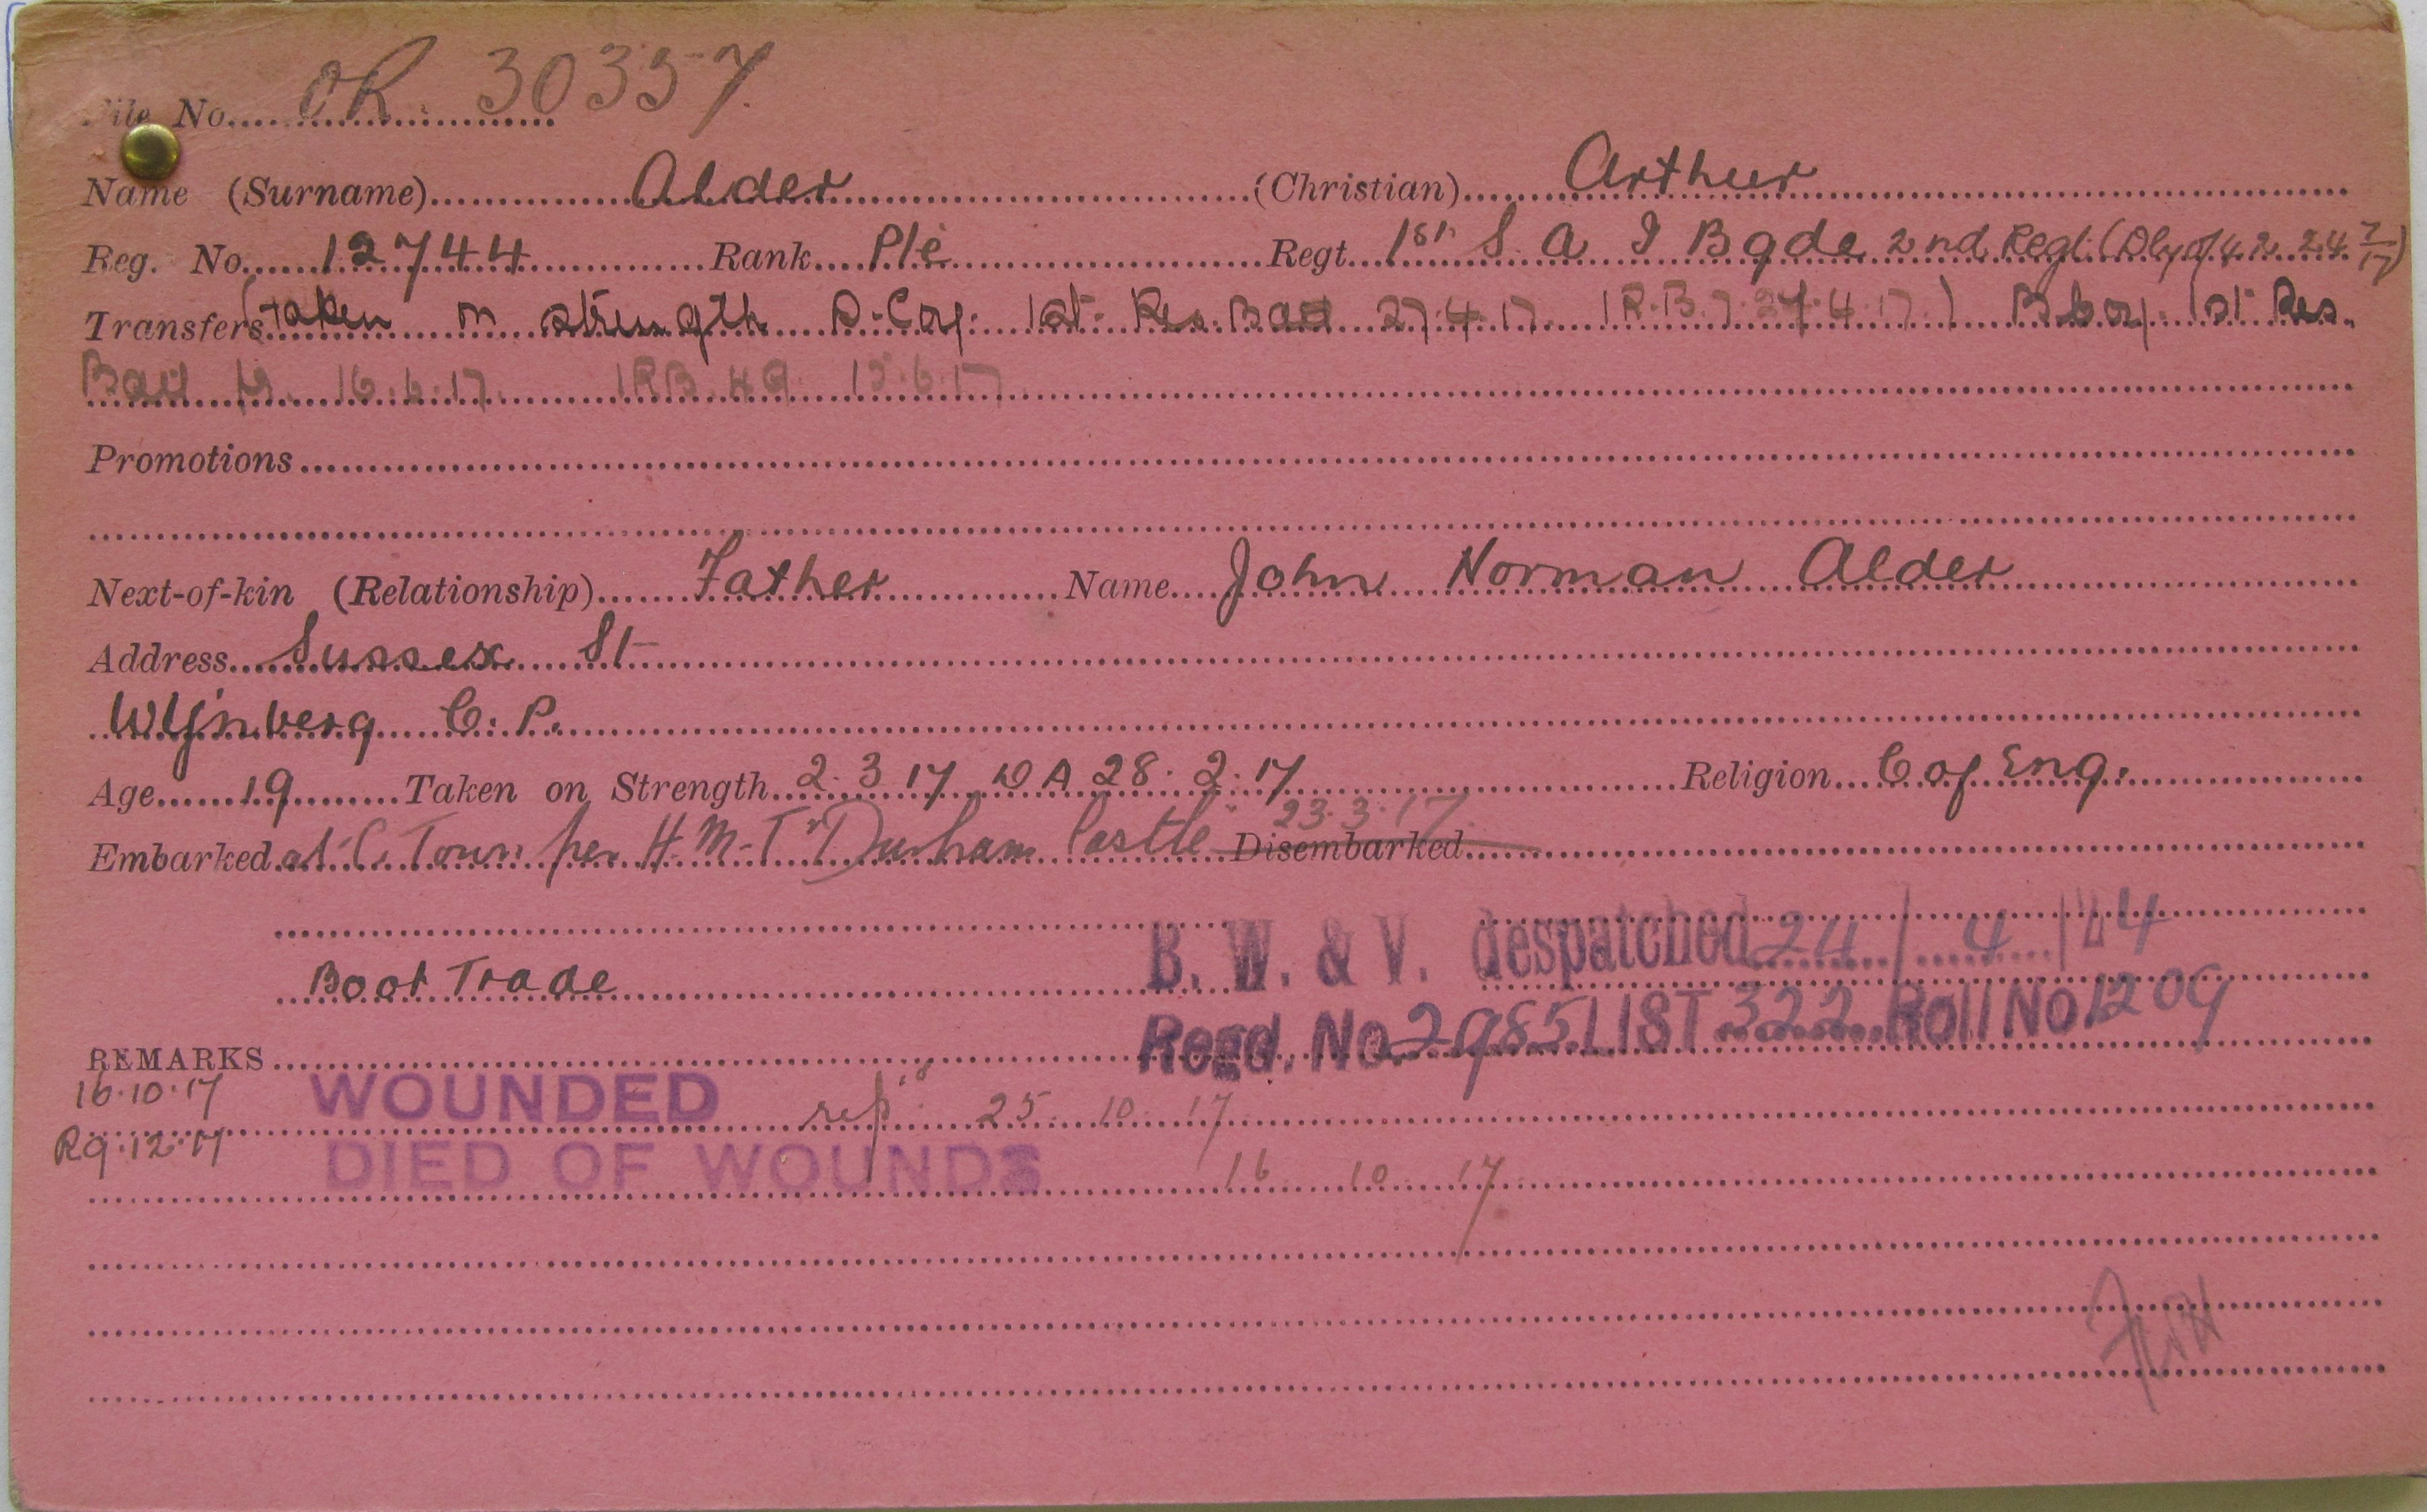 File No. OR 30357.
Name (Surname) Alder (Christian) Arthur
Reg. No. 12744 Rank Pte Regt. 1st S. A I Bgde 2nd Regt.
Transfers (taken on strength D. Coy. 1st Res. Batt 27.4.17. 1R.B.7. 27.4.17.) B Coy. 1st Res.
Batt 16.6.17. 1RB 49 15.6.17
Promotions
Next-of-kin (Relationship) Father Name John Norman Alder
Address Sussex St
Wynberg C. P.
Age 19 Taken on Strength 2. 3 17 DA 28. 2. 17 Religion C of Eng.
Embarked at C. Town per H. M. T "Durham Castle" Disembarked 23.3.17.
B. W. & V. despatched 24/4/24
Boot Trade
Regd. No. 2985 LIST 322 Roll No. 1209
REMARKS
16.10.17 WOUNDED rep. 25. 10. 17
R9.12.17 DIED OF WOUNDS 16 10 17